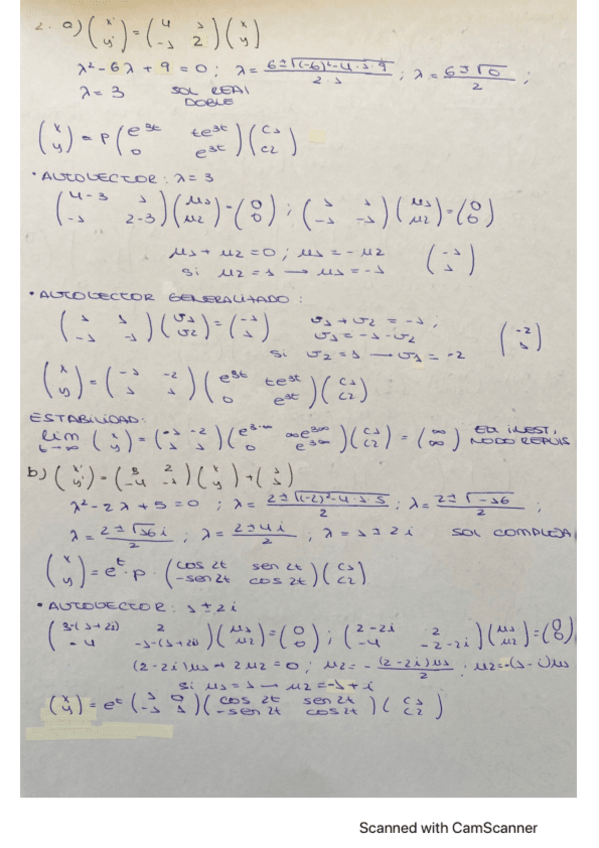 2. a) (x' y') = (4 1 -1 2)(x y)
λ² - 6λ + 9 = 0 ; λ = 6±√(-6)²-4·1·9 / 2·1 ; λ = 6±√0 / 2 ;
λ = 3 SOL REAL DOBLE
(x y) = P (e³ᵗ te³ᵗ 0 e³ᵗ)(C1 C2)
• AUTOVECTOR: λ = 3
(4-3 1 -1 2-3)(μ1 μ2) = (0 0) ; (1 1 -1 -1)(μ1 μ2) = (0 0)
μ1 + μ2 = 0 ; μ1 = -μ2 (-1 1)
si μ2 = 1 → μ1 = -1
• AUTOVECTOR GENERALIZADO:
(1 1 -1 -1)(v1 v2) = (-1 1) v1 + v2 = -1 ; (-2 1)
v1 = -1 - v2
si v2 = 1 → v1 = -2
(x y) = (-1 -2 1 1)(e³ᵗ te³ᵗ 0 e³ᵗ)(C1 C2)
ESTABILIDAD:
lim t→∞ (x y) = (-1 -2 1 1)(e³·∞ ∞e³∞ 0 e³∞)(C1 C2) = (∞ ∞) EQ INEST, NODO REPULS
b) (x' y') = (3 2 -4 -1)(x y) + (1 1)
λ² - 2λ + 5 = 0 ; λ = 2±√(-2)²-4·1·5 / 2 ; λ = 2±√-16 / 2 ;
λ = 2±√16 i / 2 ; λ = 2±4i / 2 ; λ = 1±2i SOL COMPLEJA
(x y) = eᵗ · P · (cos 2t sen 2t -sen 2t cos 2t)(C1 C2)
• AUTOVECTOR: 1±2i
(3-(1+2i) 2 -4 -1-(1+2i))(μ1 μ2) = (0 0) ; (2-2i 2 -4 -2-2i)(μ1 μ2) = (0 0)
(2-2i)μ1 + 2μ2 = 0 ; μ2 = -(2-2i)μ1 / 2 ; μ2 = -(1-i)μ1
si μ1 = 1 → μ2 = -1+i
(x y) = eᵗ (1 0 -1 1)(cos 2t sen 2t -sen 2t cos 2t)(C1 C2)
Scanned with CamScanner